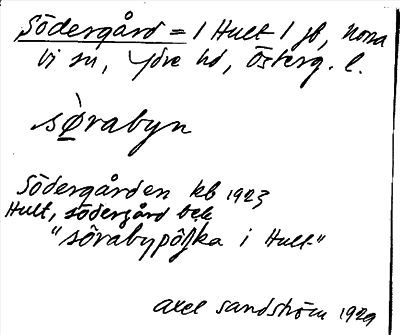 Södergård = 1 Hult 1 jb, Norra
Vi sn, Ydre hd, Österg. l.
sørabyn
Södergården kb 1923
Hult, södergård bek
"sörabypöjka i Hult"
Axel Sandström 1929